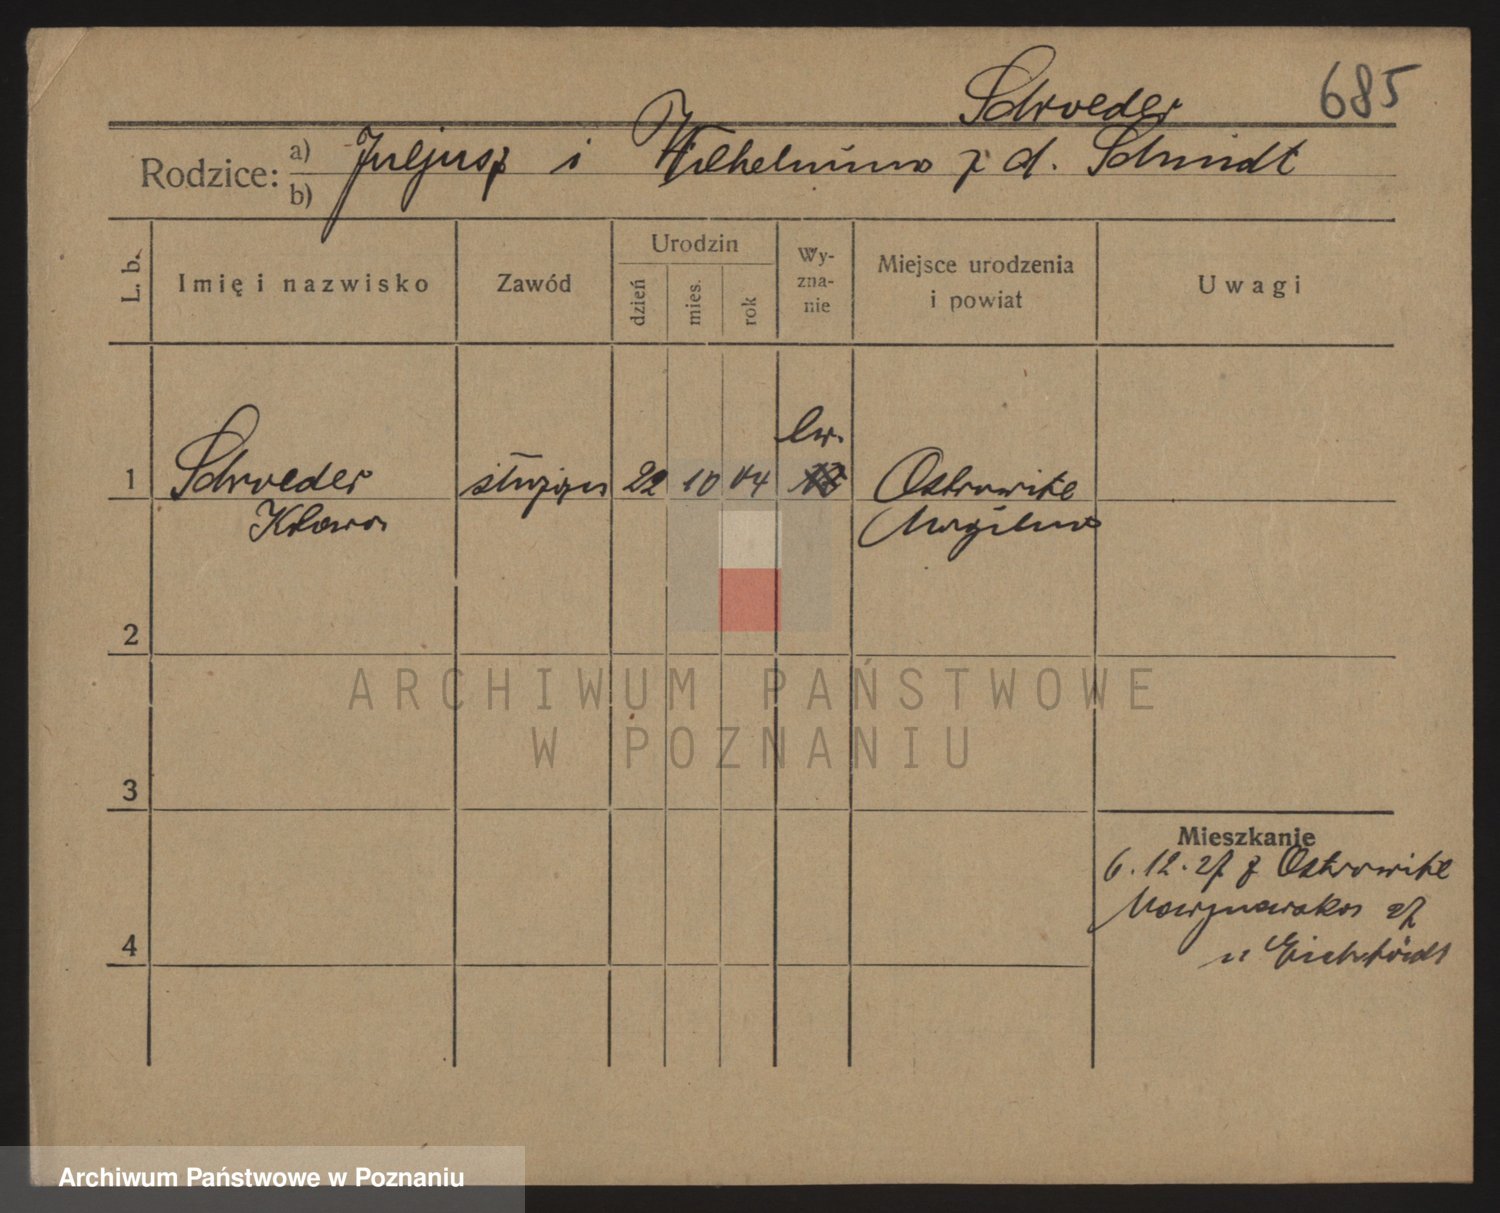 Schroeder 685
Rodzice: a) Juljusz i Wilhelmina z d. Schmidt
b)
L. b. Imię i nazwisko Zawód Urodzin dzień mies. rok Wy-zna-nie Miejsce urodzenia i powiat Uwagi
ew.
1 Schroeder służąca 22 10 04 Ostrowite
Klara Mogilno
2
ARCHIWUM PAŃSTWOWE
W POZNANIU
3
Mieszkanie
6.12.27 z Ostrowite
4
u Eichstädt
Archiwum Państwowe w Poznaniu